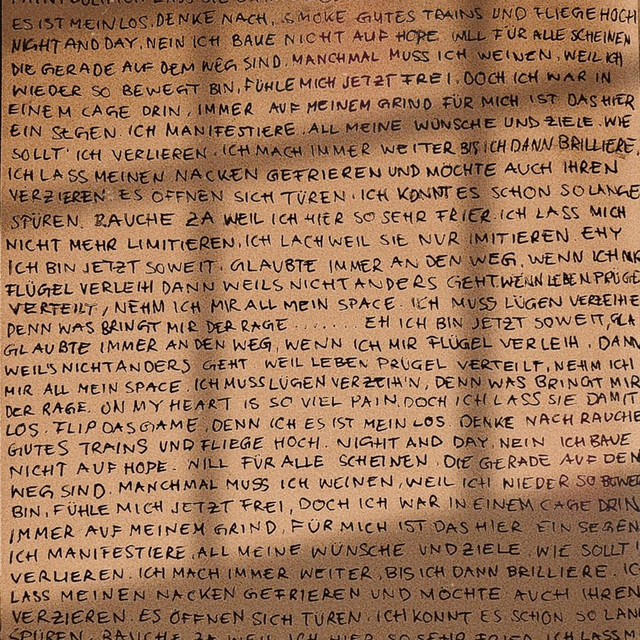 ES IST MEIN LOS, DENKE NACH, SMOKE GUTES TRAINS UND FLIEGE HOCH
NIGHT AND DAY, NEIN ICH BAUE NICHT AUF HOPE. WILL FÜR ALLE SCHEINEN
DIE GERADE AUF DEM WEG SIND. MANCHMAL MUSS ICH WEINEN, WEIL ICH
WIEDER SO BEWEGT BIN, FÜHLE MICH JETZT FREI, DOCH ICH WAR IN
EINEM CAGE DRIN, IMMER AUF MEINEM GRIND FÜR MICH IST DAS HIER
EIN SEGEN. ICH MANIFESTIERE, ALL MEINE WÜNSCHE UND ZIELE. WIE
SOLLT' ICH VERLIEREN. ICH MACH IMMER WEITER BIS ICH DANN BRILLIERE,
ICH LASS MEINEN NACKEN GEFRIEREN UND MÖCHTE AUCH IHREN
VERZIEREN. ES ÖFFNEN SICH TÜREN. ICH KONNT ES SCHON SO LANGE
SPÜREN. RAUCHE ZA WEIL ICH HIER SO SEHR FRIER. ICH LASS MICH
NICHT MEHR LIMITIEREN, ICH LACH WEIL SIE NUR IMITIEREN. EHY
ICH BIN JETZT SOWEIT. GLAUBTE IMMER AN DEN WEG, WENN ICH MIR
FLÜGEL VERLEIH DANN WEILS NICHT ANDERS GEHT. WENN LEBEN PRÜGEL
VERTEILT, NEHM ICH MIR ALL MEIN SPACE. ICH MUSS LÜGEN VERZEIHE
DENN WAS BRINGT MIR DER RAGE....... EH ICH BIN JETZT SOWEIT, GLA
GLAUBTE IMMER AN DEN WEG, WENN ICH MIR FLÜGEL VERLEIH. DANN
WEIL'S NICHT ANDERS GEHT WEIL LEBEN PRÜGEL VERTEILT, NEHM ICH
MIR ALL MEIN SPACE. ICH MUSS LÜGEN VERZEIH'N, DENN WAS BRINGT MIR
DER RAGE. ON MY HEART IS SO VIEL PAIN, DOCH ICH LASS SIE DAMIT
LOS. FLIP DAS GAME, DENN ICH ES IST MEIN LOS. DENKE NACH RAUCHE
GUTES TRAINS UND FLIEGE HOCH. NIGHT AND DAY, NEIN ICH BAUE
NICHT AUF HOPE. WILL FÜR ALLE SCHEINEN. DIE GERADE AUF DEN
WEG SIND. MANCHMAL MUSS ICH WEINEN, WEIL ICH NIEDER SO BEWEG
BIN, FÜHLE MICH JETZT FREI, DOCH ICH WAR IN EINEM CAGE DRIN
IMMER AUF MEINEM GRIND, FÜR MICH IST DAS HIER EIN SEGEN
ICH MANIFESTIERE, ALL MEINE WÜNSCHE UND ZIELE. WIE SOLLT I
VERLIEREN. ICH MACH IMMER WEITER, BIS ICH DANN BRILLIERE. IC
LASS MEINEN NACKEN GEFRIEREN UND MÖCHTE AUCH IHREN
VERZIEREN. ES ÖFFNEN SICH TÜREN. ICH KONNT ES SCHON SO LAN
SPÜREN. RAUCHE ZA WEIL ICH HIER SO SEHR FRIER. ICH LASS M